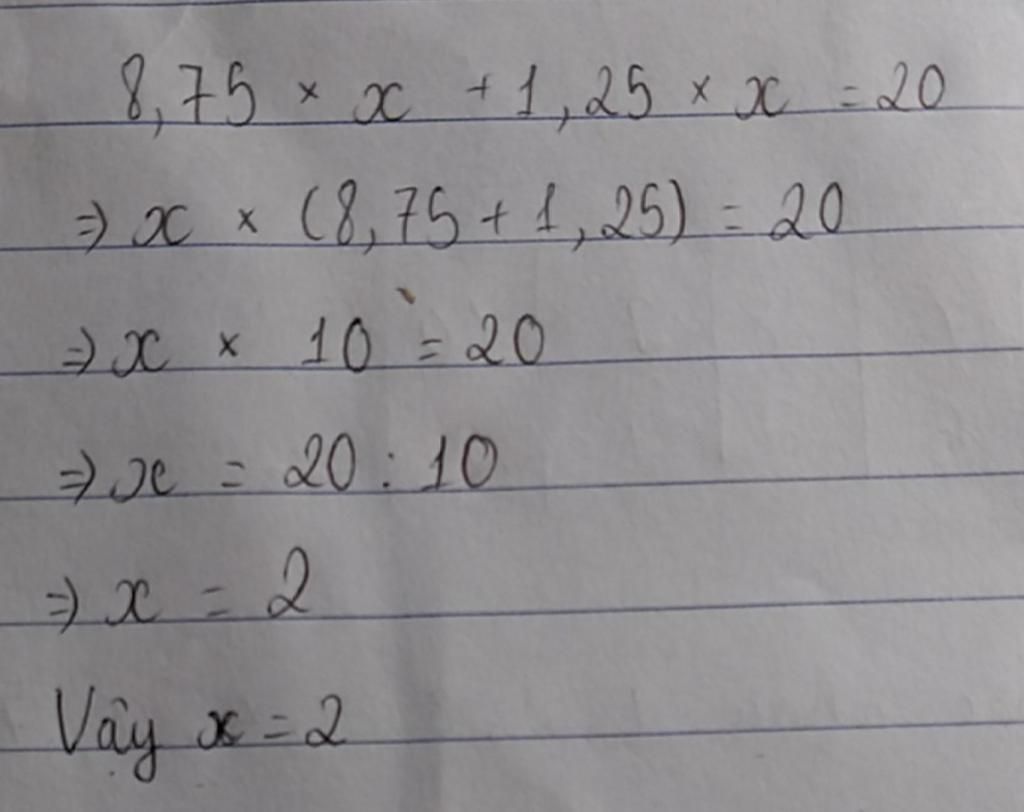 8,75 × x + 1,25 × x = 20
⇒ x × (8,75 + 1,25) = 20
⇒ x × 10 = 20
⇒ x = 20 : 10
⇒ x = 2
Vậy x = 2